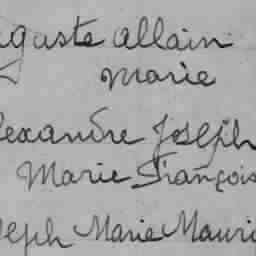 guste allain
Marie
lexandre Joseph
Marie François
seph Marie Mauri